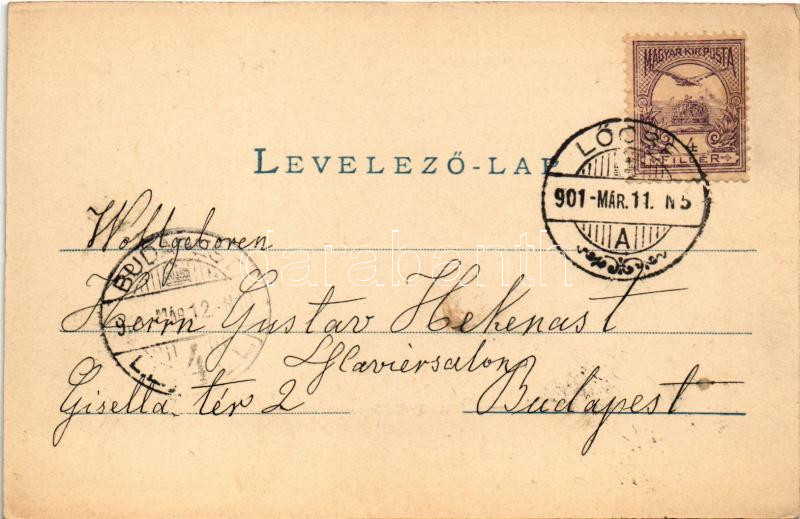 MAGYAR KIR. POSTA
4
FILLÉR
LŐCSE
901-MÁR.11. N5
A
LEVELEZŐ-LAP
Wohlgeboren
Herrn Gustav Hekenast
Klaviersalon
Gisella tér 2 Budapest
BUDAPEST
MÁR 12
darabanth